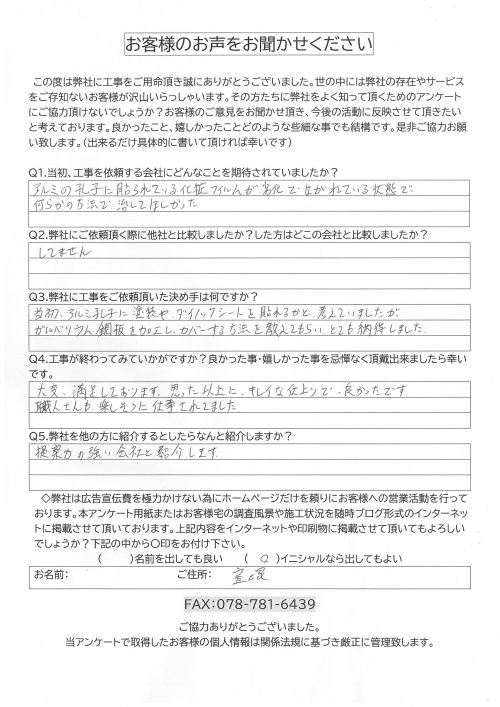 お客様のお声をお聞かせください
この度は弊社に工事をご用命頂き誠にありがとうございました。世の中には弊社の存在やサービス
をご存知ないお客様が沢山いらっしゃいます。その方たちに弊社をよく知って頂くためのアンケート
にご協力頂けないでしょうか？お客様のご意見をお聞かせ頂き、今後の活動に反映させて頂きたい
と考えております。良かったこと、嬉しかったことどのような些細な事でも結構です。是非ご協力お願
い致します。（出来るだけ具体的に書いて頂ければ幸いです）
Q1.当初、工事を依頼する会社にどんなことを期待されていましたか？
アルミの孔子に貼られている化粧フィルムが劣化ではがれている状態で
何らかの方法で、治してほしかった
Q2.弊社にご依頼頂く際に他社と比較しましたか？した方はどこの会社と比較しましたか？
してません
Q3.弊社に工事をご依頼頂いた決め手は何ですか？
当初、アルミ孔子に塗装や、ダイノックシートを貼れるかと、考えていましたが
ガルバリウム鋼板を加工し、カバーする方法を教えてもらい、とても納得しました。
Q4.工事が終わってみていかがですか？良かった事・嬉しかった事を忌憚なく頂戴出来ましたら幸い
です。
大変、満足しております。思った以上に、キレイな仕上りで、良かったです。
職人さんも、楽しそうに仕事されてました
Q5.弊社を他の方に紹介するとしたらなんと紹介しますか？
提案力の強い会社と紹介します。
◇弊社は広告宣伝費を極力かけない為にホームページだけを頼りにお客様への営業活動を行って
おります。本アンケート用紙またはお客様宅の調査風景や施工状況を随時ブログ形式のインターネッ
トに掲載させて頂いております。上記内容をインターネットや印刷物に掲載させて頂いてもよろしい
でしょうか？下記の中から〇印をお付け下さい。
（　　）名前を出しても良い　（ ○ ）イニシャルなら出してもよい
お名前：　ご住所：
FAX：078-781-6439
ご協力ありがとうございました。
当アンケートで取得したお客様の個人情報は関係法規に基づき厳正に管理致します。